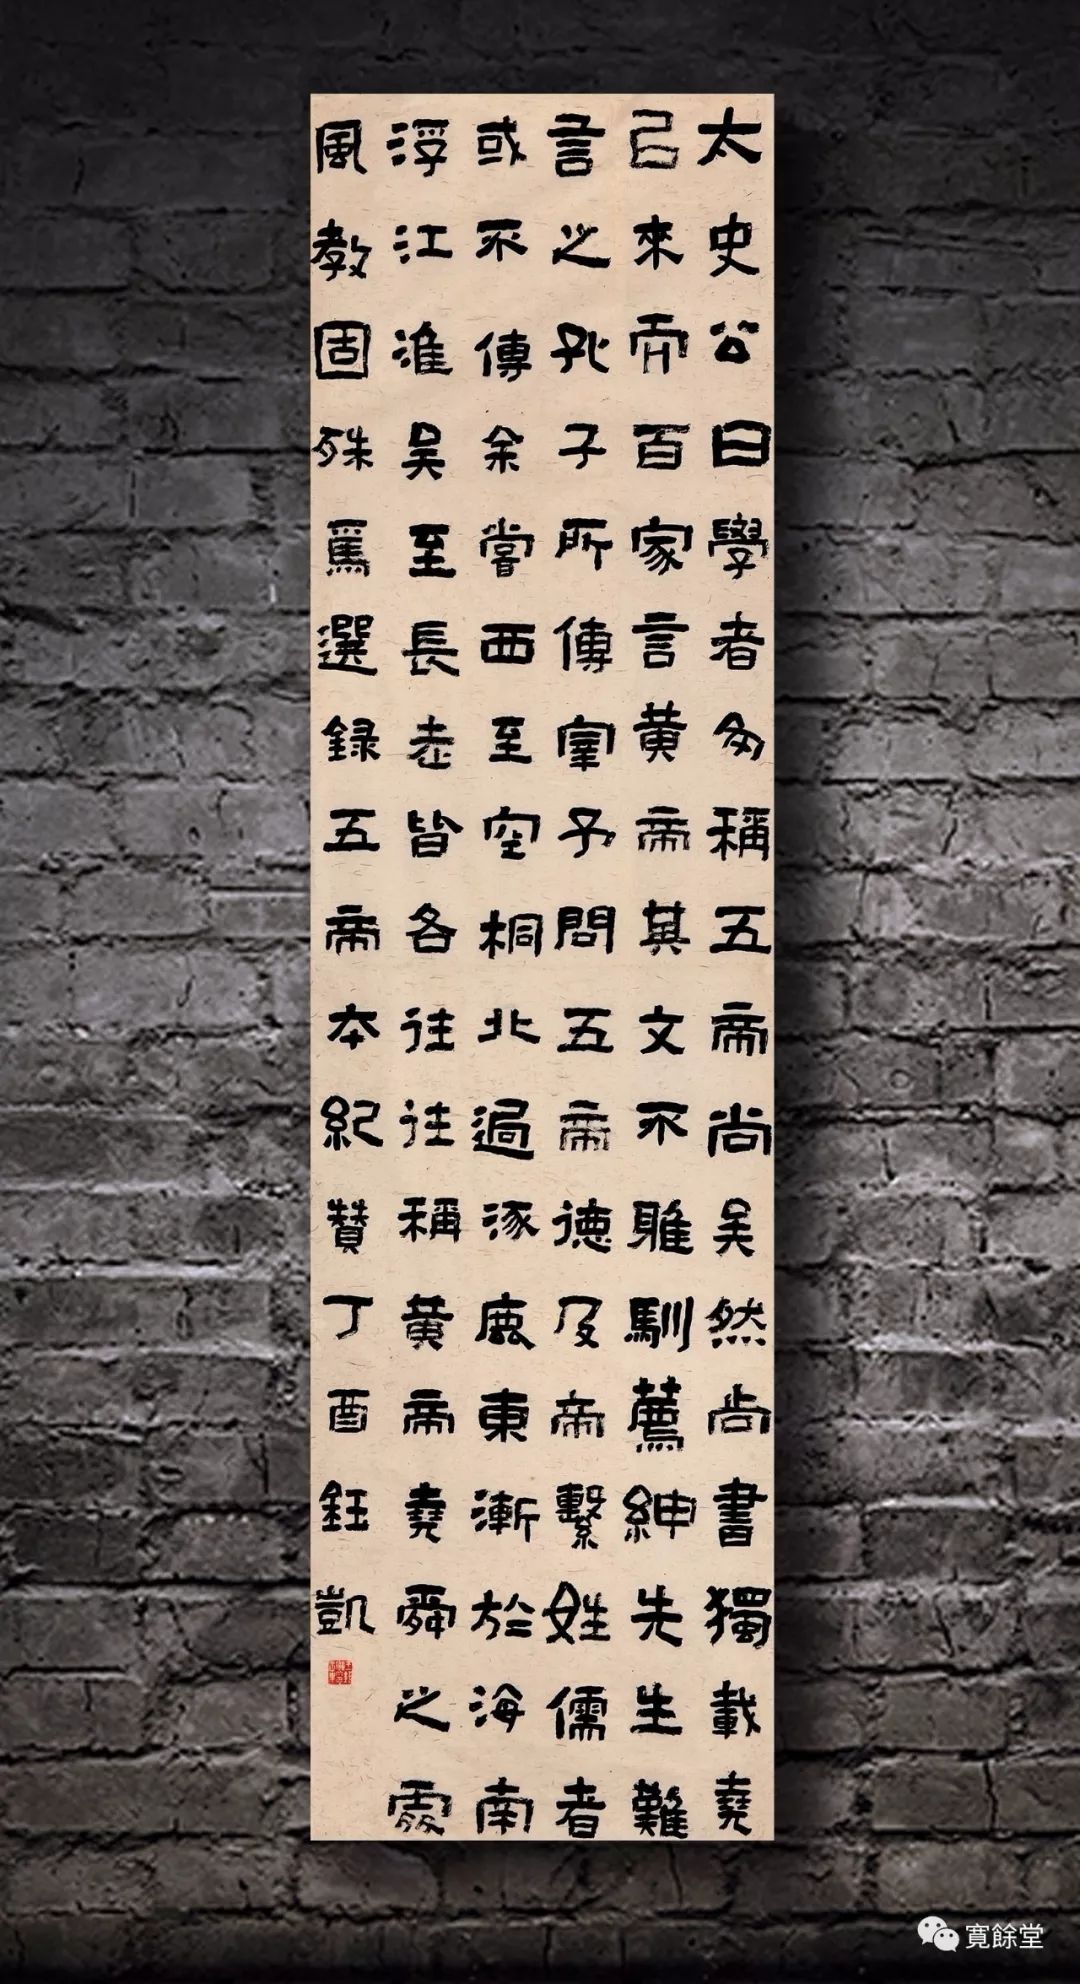 太史公曰學者多稱五帝尚矣然尚書獨載堯
已來而百家言黃帝其文不雅馴薦紳先生難
言之孔子所傳宰予問五帝德及帝繫姓儒者
或不傳余嘗西至空桐北過涿鹿東漸於海南
浮江淮吴至長老皆各往往稱黃帝堯舜之處
風教固殊焉選録五帝本紀贊丁酉鈺凱
寬餘堂